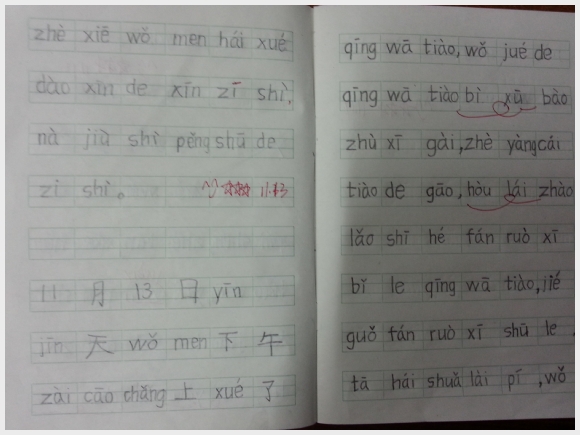 zhè xiē wǒ men hái xué
dào xīn de xīn zī shì,
nà jiù shì pěng shū de
zī shì。 11.13
11 月 13 日 yīn
jīn 天 wǒ men 下 午
zài cāo chǎng 上 xué 了
qīng wā tiào, wǒ jué de
qīng wā tiào bì xū bào
zhù xī gài, zhè yàng cái
tiào de gāo, hòu lái zhào
lǎo shī hé fán ruò xī
bǐ le qīng wā tiào, jié
guǒ fán ruò xī shū le
tā hái shuǎ lài pí, wǒ